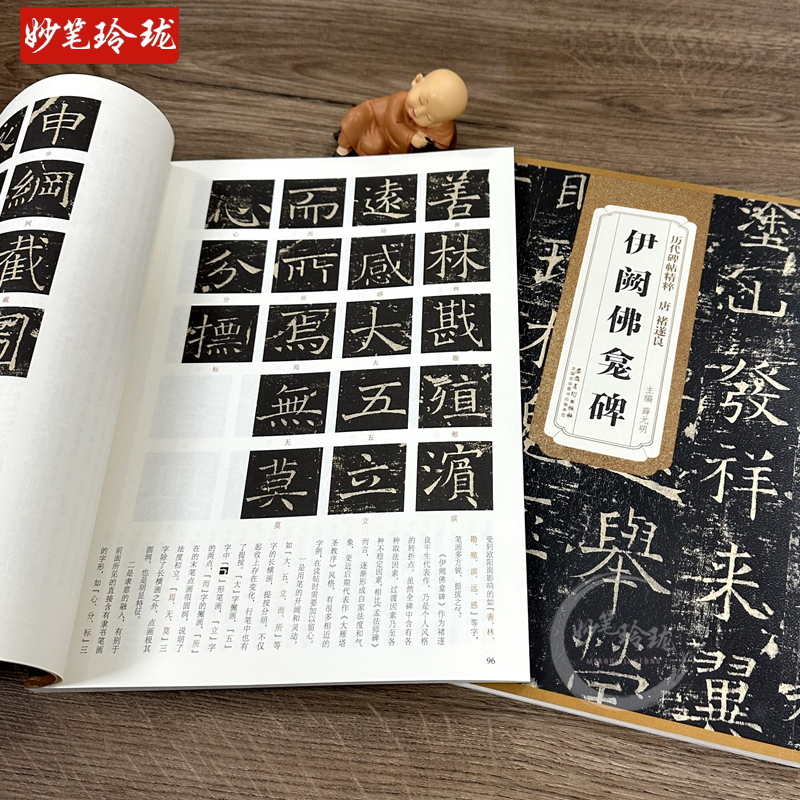 妙笔玲珑
申
網
截
申
网
截
善
林
戡
殖
濱
遠
感
大
五
立
而
所
焉
無
莫
心
分
標
善
林
勘
殖
滨
远
感
大
五
立
而
所
焉
无
莫
心
分
标
受到欧阳询影响的如“善、林、
勘、殖、滨、远、感”等字，
笔画多方锐，挺拔之
《伊阙佛龛碑》作为褚遂
良平生代表作，乃是个人风格
的转折点。虽然全碑中含有各
种取法因素、过渡因素乃至各
种不稳定因素，相比《孟法师碑》
而言，逐渐形成自家法度和气
象，更近后期代表作《大雁塔
圣教序》风格，有很多相近的
字例，在读帖时需要加以留心。
一是用笔的开阔和灵动。
如“大、五、立、而、所”等
字的长横画，提按分明，不仅
起收上存在变化，行笔中也有
了提按。“大”字撇画、“五”
字中“㇕”形笔画、“立”字
的两点、“而”字的撇画、“所”
在的末笔点画很圆润，说明了
法度初立。“焉、无、莫”三
字除了长横画之外，点画极其
圆润，也是明显特征。
二是隶意的融入。有别于
前面所见的直接含有隶书笔画
的字形，如“心、分、标”三
96
历代碑帖精粹 唐 褚遂良
伊阙佛龛碑
主编 薛元明
安徽美术出版社
塗山發祥來翼
舉
妙笔玲珑